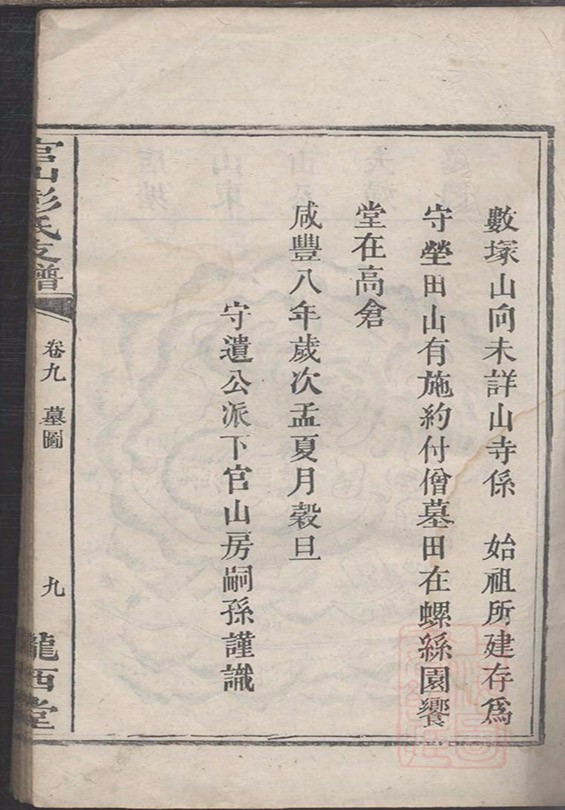 數塚山向未詳山寺係　始祖所建存為
守塋田山有施約付僧墓田在螺絲園饗
堂在高倉
咸豐八年歲次孟夏月穀旦
守遺公派下官山房嗣孫謹識
官山彭氏支譜
卷九　墓圖
九
隴西堂